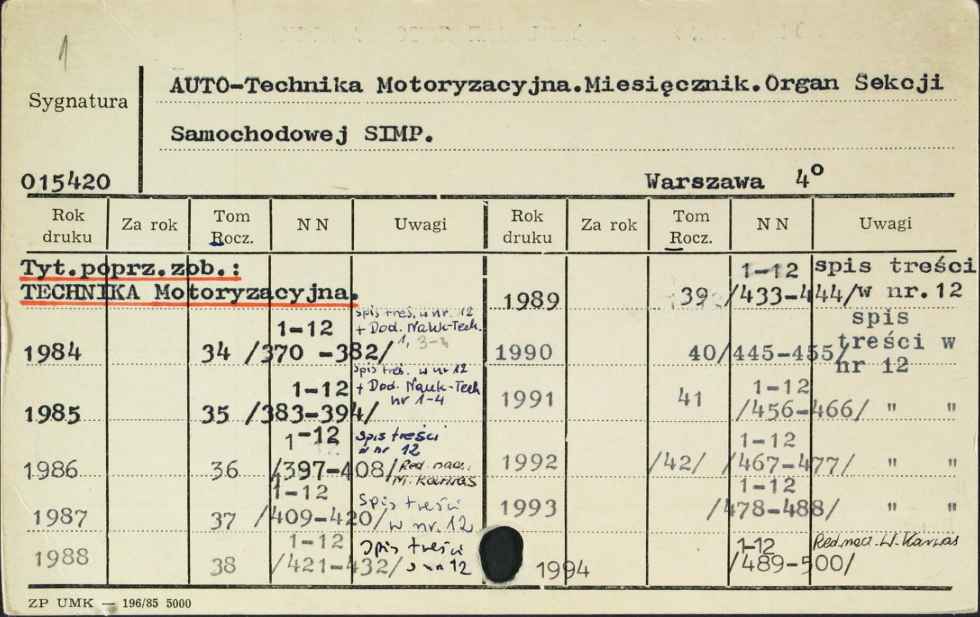 1
Sygnatura
AUTO-Technika Motoryzacyjna.Miesięcznik.Organ Sekcji
Samochodowej SIMP.
015420
Warszawa 4°
Rok druku Za rok Tom Rocz. NN Uwagi Rok druku Za rok Tom Rocz. NN Uwagi
Tyt.poprz.zob.:
TECHNIKA Motoryzacyjna.
1984 34 1-12 /370 -382/ spis treś. w nr. 12 + Dod. Nauk-Tech. 1, 3-4
1985 35 1-12 /383-394/ spis treś. w nr 12 + Dod. Nauk-Tech nr 1-4
1986 36 1-12 /397-408/ spis treści w nr 12 Red. nacz. M. Karnas
1987 37 1-12 /409-420/ Spis treści w nr. 12
1988 38 1-12 /421-432/ Spis treści 12
1989 39 1-12 /433-444/ spis treści w nr.12
1990 40 /445-455/ spis treści w nr 12
1991 41 1-12 /456-466/ " "
1992 /42/ 1-12 /467-477/ " "
1993 1-12 /478-488/ " "
1994 1-12 /489-500/ Red. nacz. W. Karnas
ZP UMK — 196/85 5000